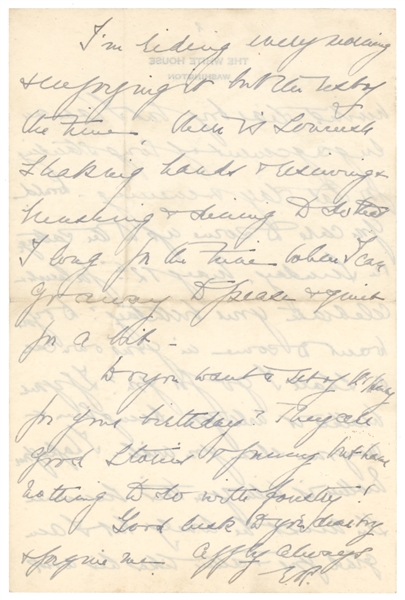 I'm riding every morning
& enjoying it but the rest of
the time, there is so much
shaking hands & receiving &
lunching & dining to do that
I long for the time when I can
go away to peace & quiet
for a bit –
Do you want a set of O. Henry
for your birthday? They are
good stories & funny but have
nothing to do with
Good luck to you dear boy
& forgive me. Affly always
E.R.
THE WHITE HOUSE
WASHINGTON